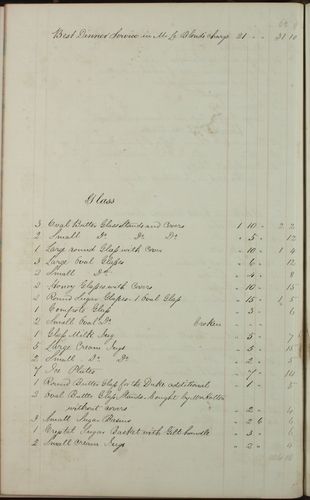 Best Dinner Service in Mr Le Blonds charge 21 - - 21 10
Glass
3 Oval Butter Glass Stands and Covers 1 10 - 2 2
2 Small Do Do Do - 5 - 12
1 Large round Glass with Cover - 10 - 1
3 Large Oval Glasses - 6 - 12
2 Small Do - 4 - 8
2 Honey Glasses with Covers - 10 - 15
2 Round Sugar Glasses 1 Oval Glass - 15 - 1 5
1 Compote Glass - 3 - 6
2 Small Oval Do broken - - -
1 Glass Milk Jug - 5 - 7
5 Large Cream Jugs - 5 -
2 Small Do Do - 2 - 5
7 Ice Plates - 7 - 10
1 Round Butter Glass for the Duke additional - 1 - 5
2 Oval Butter Glass Stands bought by
without covers - 2 - 4
3 Small Sugar Basins - 2 6 4
1 Crystal Sugar Basket with Gilt handle - 3 - 6
2 Small Cream Jugs - 2 - 4